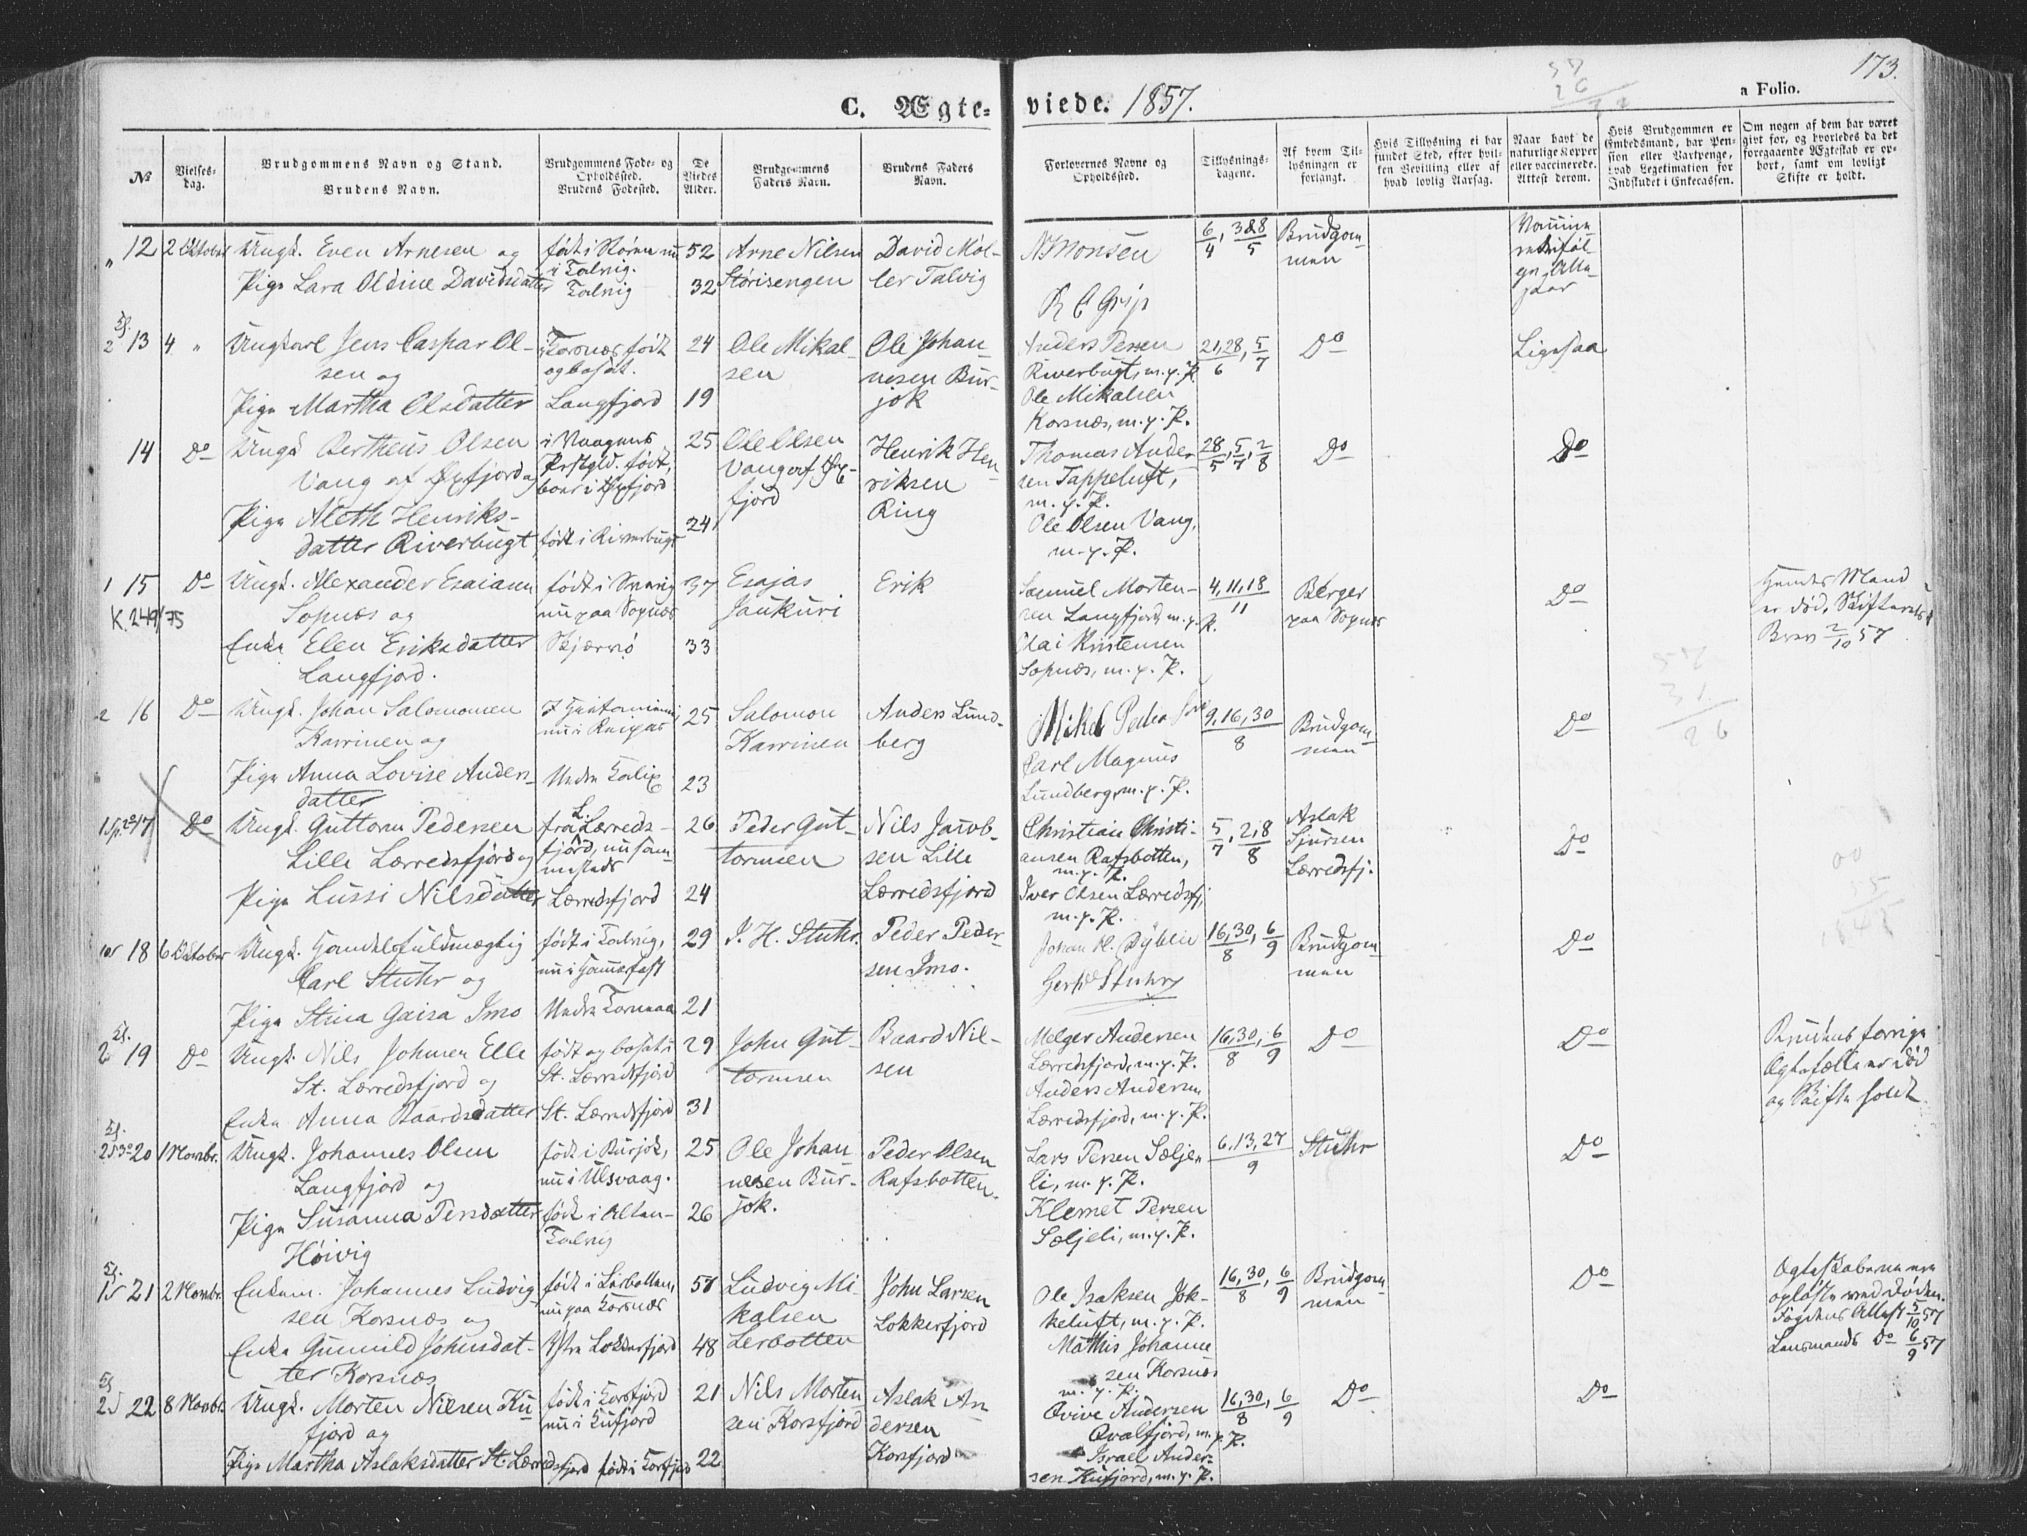 173.
C. Ægte-
viede. 1857.
a Folio.
№
Vielses-
dag.
Brudgommens Navn og Stand.
Brudens Navn.
Brudgommens Føde- og
Opholdssted.
Brudens Fødested.
De
Viedes
Alder.
Brudgommens
Faders Navn.
Brudens Faders
Navn.
Forlovernes Navne og
Opholdssted.
Tillysnings-
dagene.
Af hvem Til-
lysningen er
forlangt.
Hvis Tillysning ei har
fundet Sted, efter hvil-
ken Bevilling eller af
hvad lovlig Aarsag.
Naar havt de
naturlige Kopper
eller vaccinerede.
Attest derom.
Hvis Brudgommen er
Embedsmand, har Pen-
sion eller Vartpenge,
hvad Legitimation for
Indskudet i Enkecassen.
Om nogen af dem har været
givt før, og hvorledes da det
foregaaende Ægteskab er op-
hørt, samt om lovligt
Skifte er holdt.
12 2 Oktober Ungk. Even Arnesen og
Pige Lara Oldine Davidsdatter
født i Støren nu
i Talvig.
Talvig
52
32
Arne Nilsen
Størisengen
David Møl-
ler Talvig
N Monsen
R C Grip
6/4, 3&8/5
Brudgom-
men
13 4 " Ungkarl Jens Caspar Ol-
sen og
Pige Martha Olsdatter
Korsnæs født
og bosat.
Langfjord
24
19
Ole Mikal-
sen
Ole Johan-
nesen Bur-
jok
Anders Persen
Riverbugt, m. p. P.
Ole Mikalsen
Korsnæs, m. p. P.
21,28/6, 5/7
Do
Ligesaa
14 Do Ungk Bertheus Olsen
Vang af Øxfjord og
Pige Aleth Henriks-
datter Riverbugt
i Vaagens
Prstgld. født,
boer i Øxfjord
født i Riverbugt
25
24
Ole Olsen
Vang af Øx-
fjord
Henrik Hen-
riksen
Ring
Thomas Ander-
sen Tappeluft,
m. p. P.
Ole Olsen Vang,
m. p. P.
28/5, 5/7, 2/8
Do
Do
1 15 Do
K. 249/75
Ungk. Alexander Esaiasen
Sopnæs og
Enke Elen Eriksdatter
Langfjord.
født i Sverig
nu paa Sopnæs
Skjærvø
37
33
Esajas
Jaukuri
Erik
Samuel Morten-
sen Langfjord, m. p. P.
Olai Kristensen
Sopnæs, m. p. P.
4,11,18/11
Berger
paa Sopnæs
Do
Hendes Mand
er død, Skifterettens
Brev 2/10 57
2 16 Do Ungk. Johan Salomonsen
Karrinen og
Pige Anna Lovise Anders-
datter
nu i Raipas
Nedre Kalix
25
23
Salomon
Karrinen
Anders Lund-
berg
Mikel
Carl Magnus
Lundberg, m. p. P.
9,16,30/8
Brudgom-
men
Do
17 Do Ungk. Guttorm Pedersen
Lille Lærredsfjord og
Pige Lussi Nilsdatter
fra L. Lærreds-
fjord, nu sam-
mesteds
Lærredsfjord
26
24
Peder Gut-
tormsen
Nils Jacob-
sen Lille
Lærredsfjord
Christian Christi-
ansen Rafsbotten,
m. p. P.
Iver Olsen Lærredsfj,
m. p. P.
5/7, 2,8/8
Aslak
Sjursen
Lærredsfj.
Do
18 6 Oktober Ungk. Handelsfuldmægtig
Carl Stuhr og
Pige Stina Gaisa Imo
født i Talvig,
nu i Hammerfest
Nedre Torneaa
29
21
J. H. Stuhr.
Peder Peder-
sen Imo.
Johan H. Dyblie
Gerh Stuhr
16,30/8, 6/9
Brudgom-
men
Do
19 Do Ungk. Nils Johnsen Elle
St. Lærredsfjord og
Enke Anna Baardsdatter
født og bosat i
St. Lærredsfjord
St. Lærredsfjord
29
31
John Gut-
tormsen
Baard Nil-
sen
Melger Andersen
Lærredsfjord, m. p. P.
Anders Andersen
Lærredsfjord, m. p. P.
16,30/8, 6/9
Do
Do
Brudens forrige
Ægtefælle er død
og Skifte holdt.
20 1 Novbr. Ungk. Johannes Olsen
Langfjord og
Pige Susanna Persdatter
Høivig
født i Burjok,
nu i Ulsvaag.
født i Alten-
Talvig
25
26
Ole Johan-
nesen Bur-
jok.
Peder Olsen
Rafsbotten.
Lars Persen Sælje-
li, m. p. P.
Klemet Persen
Sæljeli, m. p. P.
6,13,27/9
Stuhr
Do
21 2 Novbr. Enkem. Johannes Ludvig-
sen Korsnæs og
Enke Gunnild Johnsdat-
ter Korsnæs
født i Lerbotten,
nu paa Korsnæs
Ytre Lokkerfjord
51
48
Ludvig Mi-
kalsen
Lerbotten
John Larsen
Lokkerfjord
Ole Isaksen Jok-
keluft, m. p. P.
Mathis Johanne-
sen Korsnæs
m. p. P.
16,30/8, 6/9
Brudgom-
men
Do
Ægteskaberne ere
opløste ved Døden.
Fogdens Attest 5/10 57
Lensmands Do 6/9 57
22 8 Novbr. Ungk. Morten Nilsen Ku-
fjord og
Pige Martha Aslaksdatter St. Lærredsfjord
født i Korsfjord
nu i Kufjord
født i Korsfjord
21
22
Nils Morten-
sen Korsfjord
Aslak An-
dersen
Korsfjord
Qvive Andersen
Qvalfjord, m. p. P.
Israel Ander-
sen Kufjord, m. p. P.
16,30/8, 6/9
Do
Do